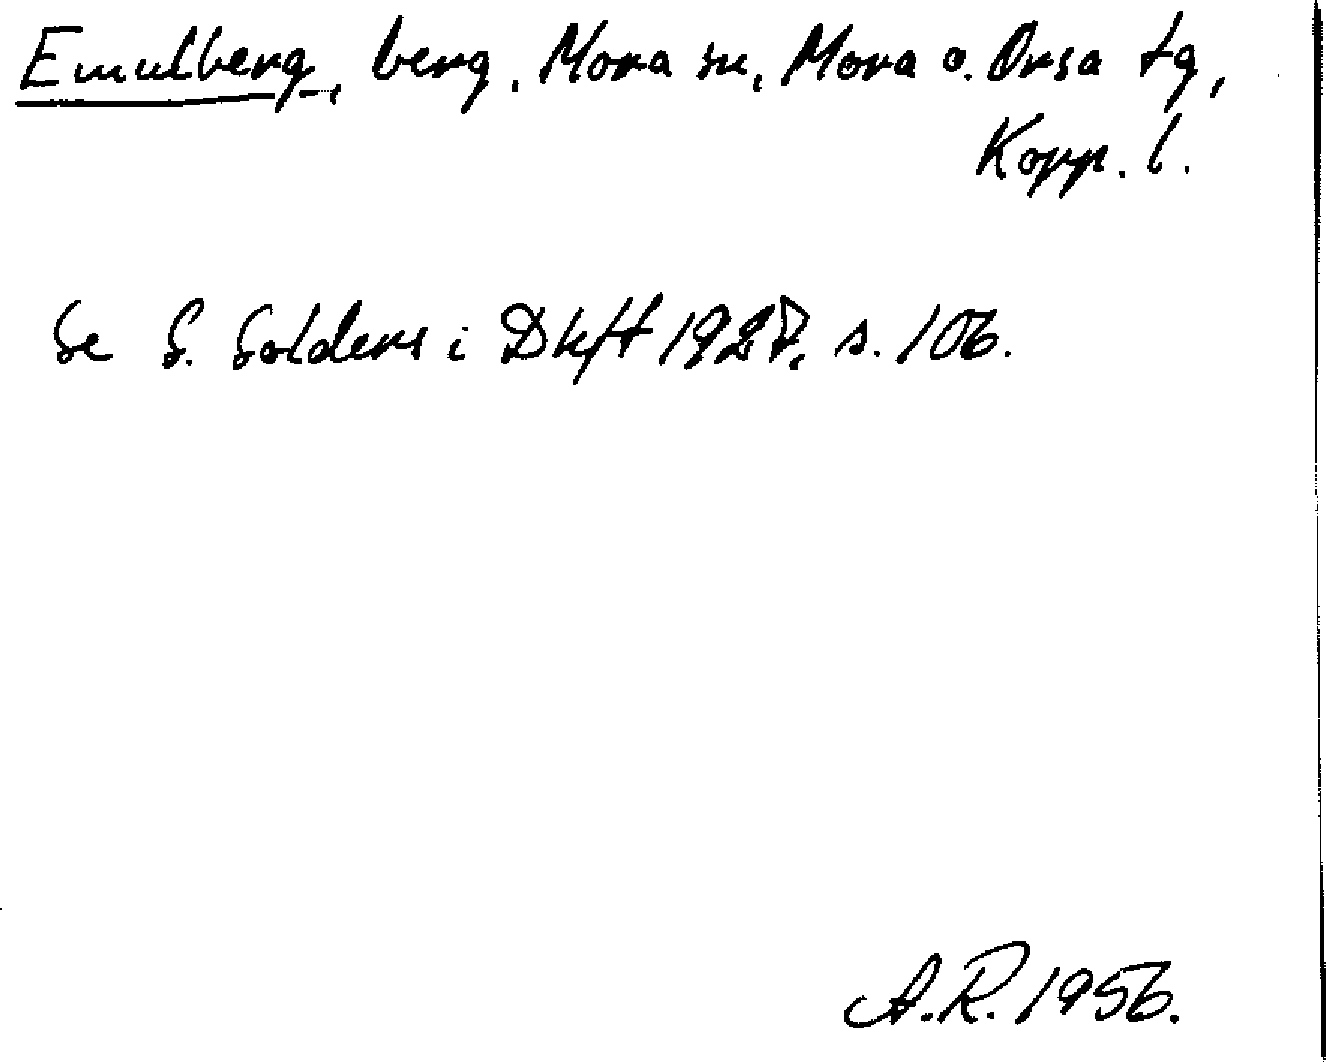 Emulberg, berg, Mora sn, Mora o. Orsa tg,
Kopp. l.
Se S. Solders i Dkft 1927. s. 106.
A.R. 1956.